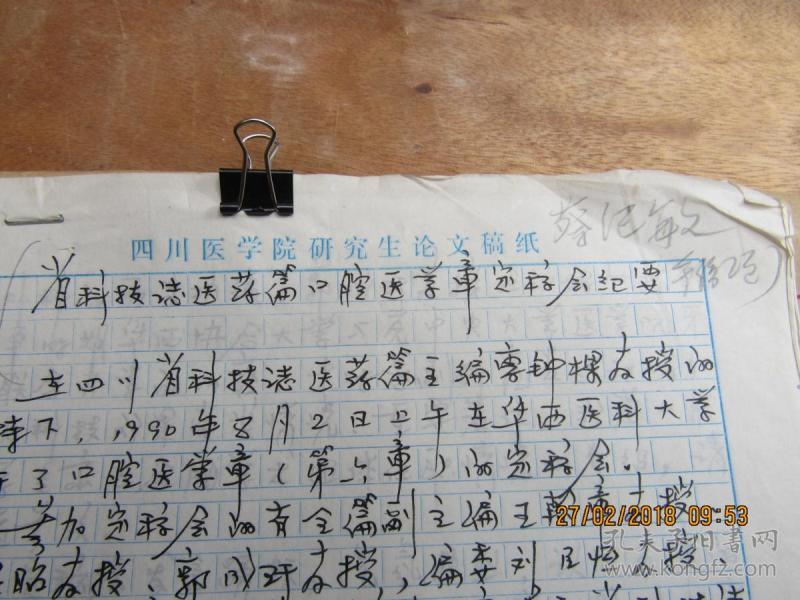 四川医学院研究生论文稿纸
蔡纪敏
省科技誌医药篇口腔医学章定稿会纪要
在四川省科技誌医药篇主编李钟棵教授的
下,1990年8月2日上午在华西医科大学
了口腔医学章(第六章)的定稿会。
参加定稿会的有全篇副主编王教授
昭教授、郭教授,编委刘教授、
27/02/2018 09:53
孔夫子旧书网
www.kongfz.com